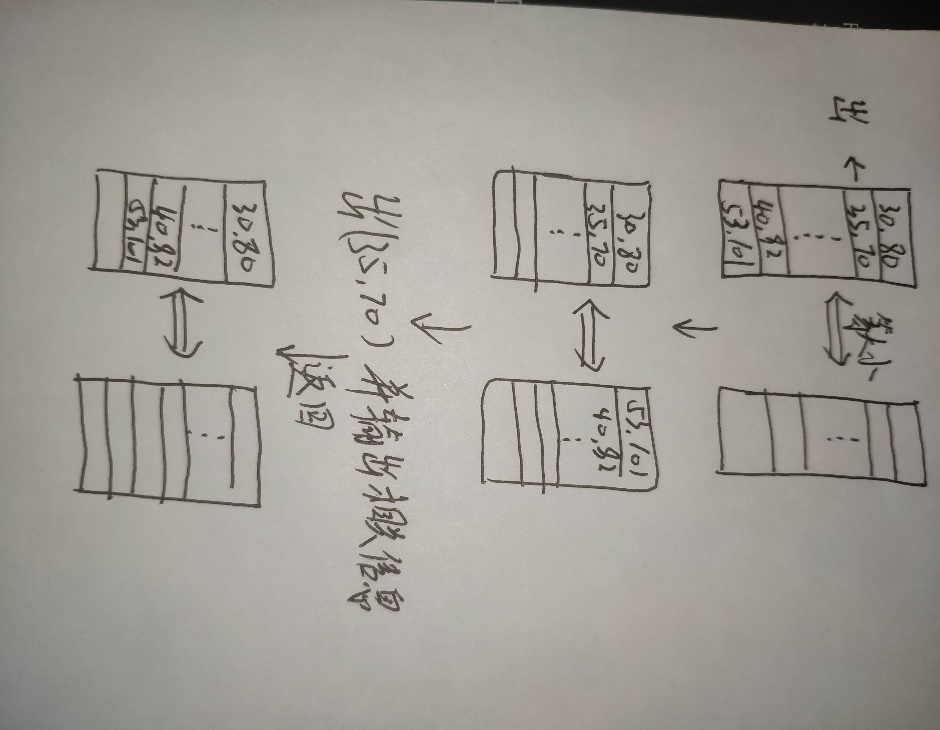 出
30,80
35,70
40,92
53,101
30,80
35,70
53,101
40,92
出(35,70) 并输出信息
返回
30,80
40,92
53,101